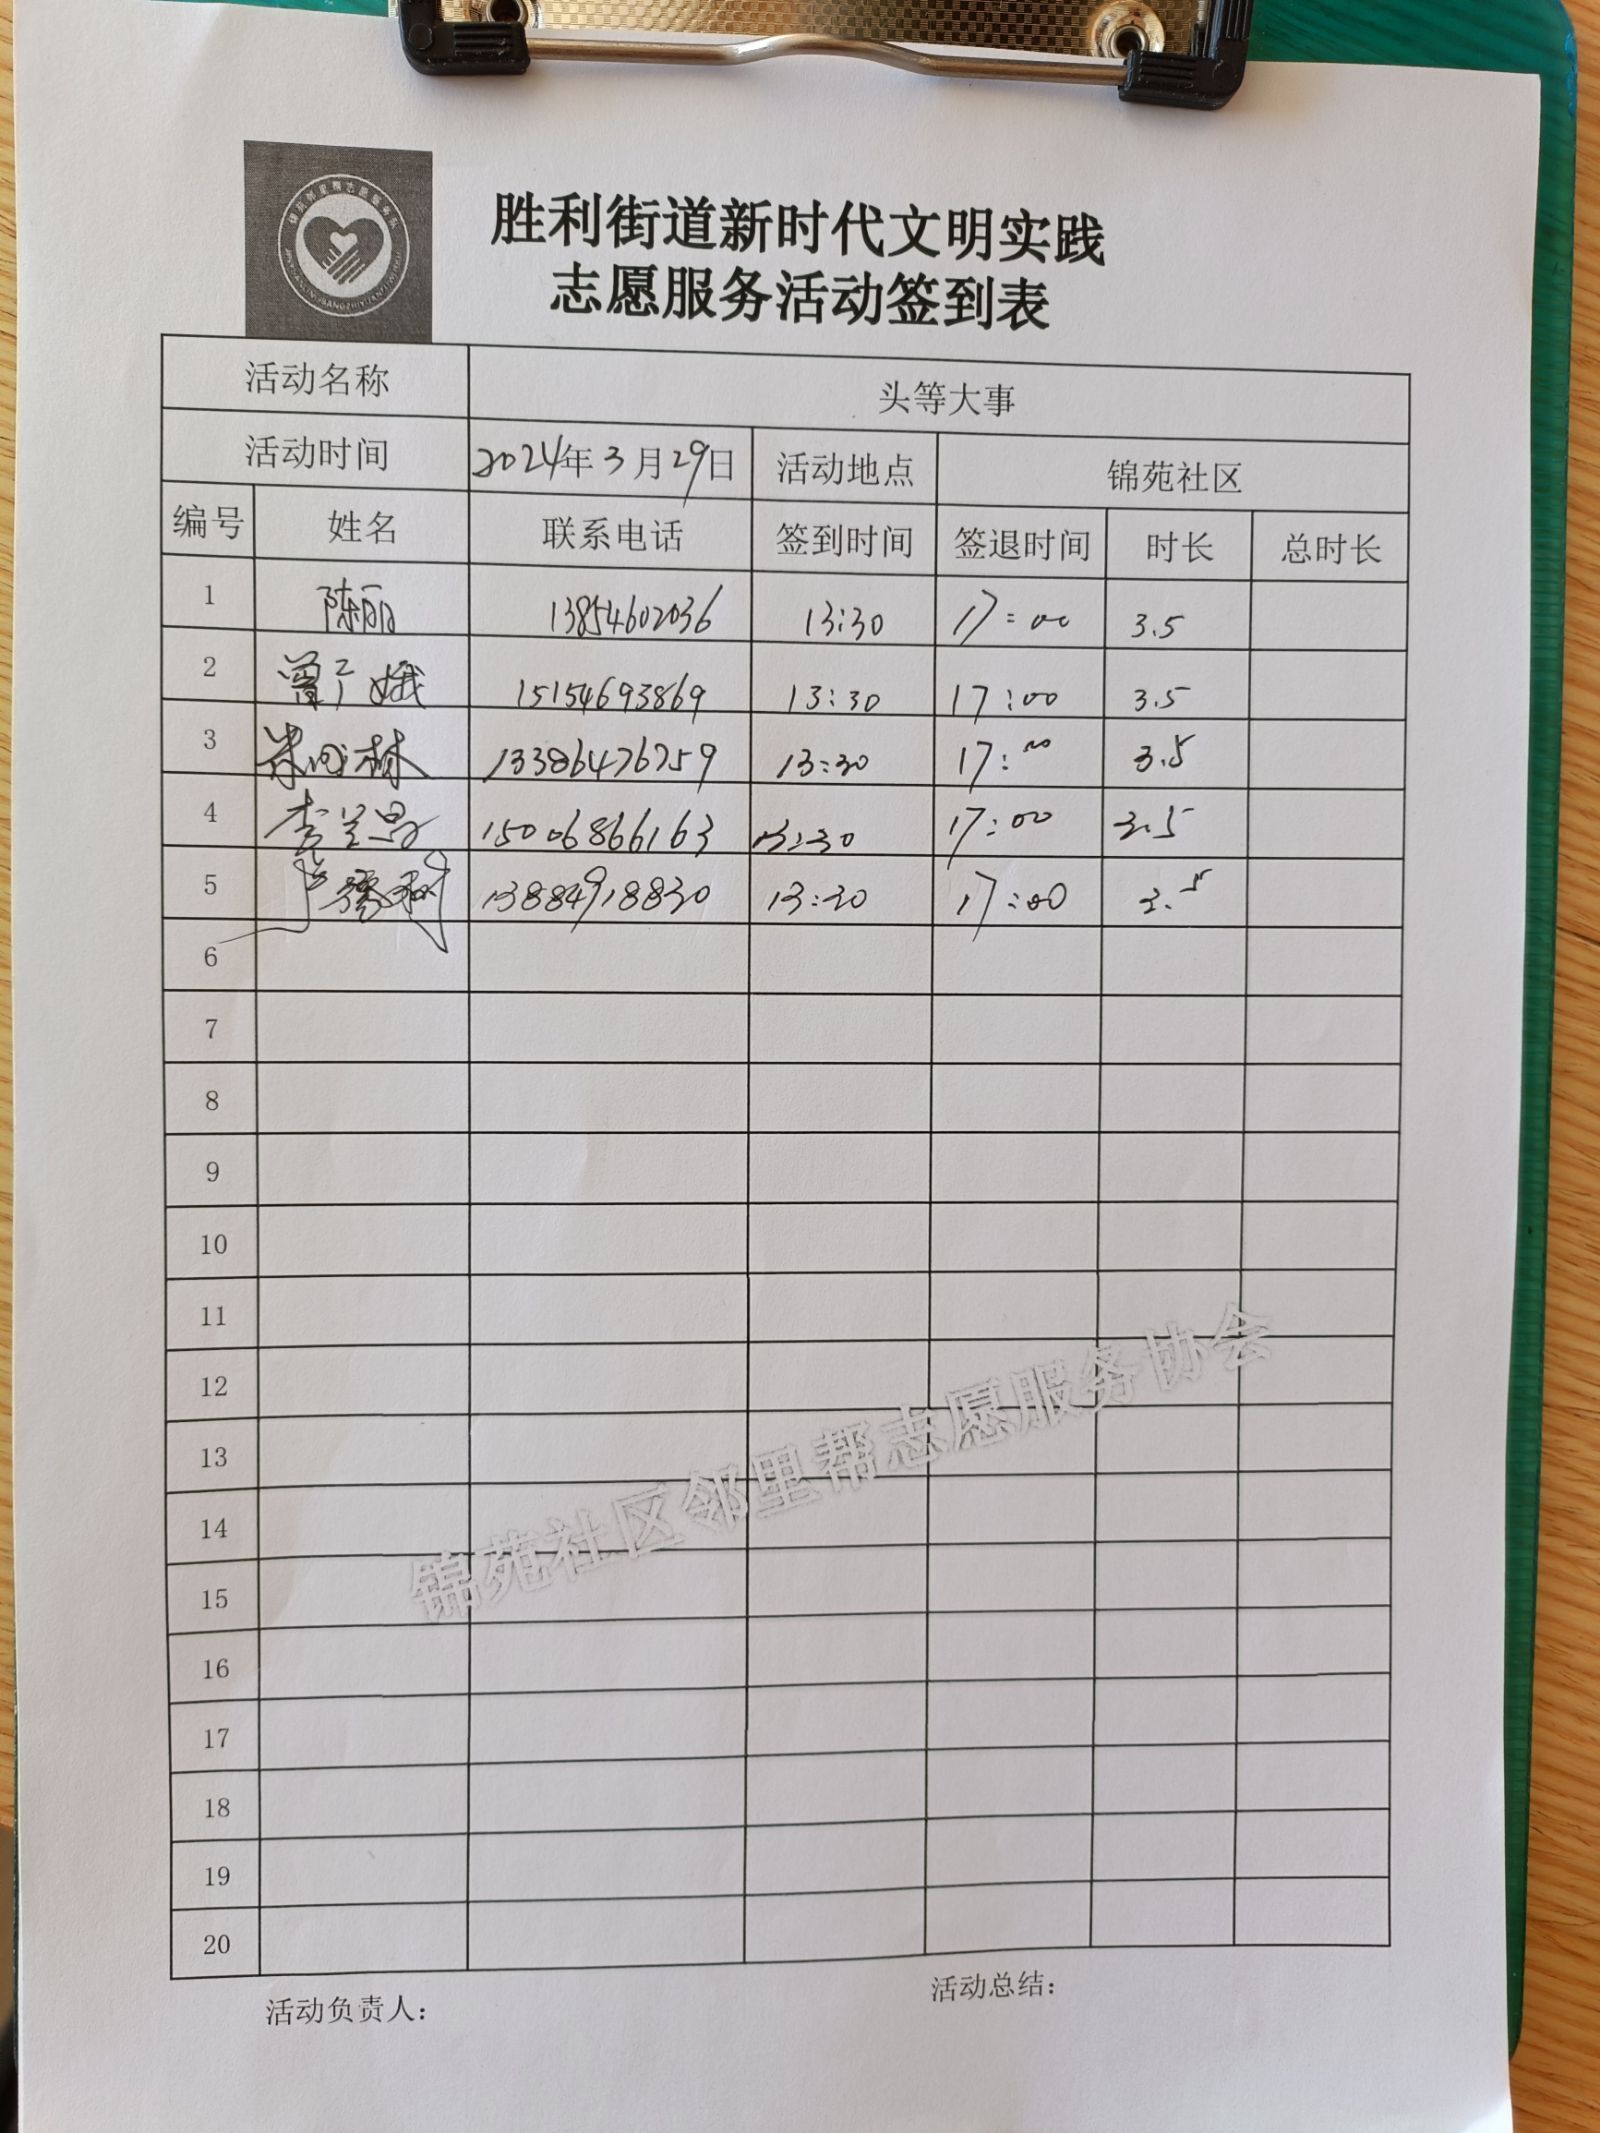 锦苑邻里帮志愿服务队
胜利街道新时代文明实践
志愿服务活动签到表
活动名称 头等大事
活动时间 2024年3月29日 活动地点 锦苑社区
编号 姓名 联系电话 签到时间 签退时间 时长 总时长
1 陈丽 13854602036 13:30 17:00 3.5
2 曾广娥 15154693869 13:30 17:00 3.5
3 13386476759 13:30 17:00 3.5
4 李兰昌 15006866163 13:30 17:00 3.5
5 13884918830 13:30 17:00 3.5
6
7
8
9
10
11
12
13
14
15
16
17
18
19
20
锦苑社区邻里帮志愿服务协会
活动负责人： 活动总结：